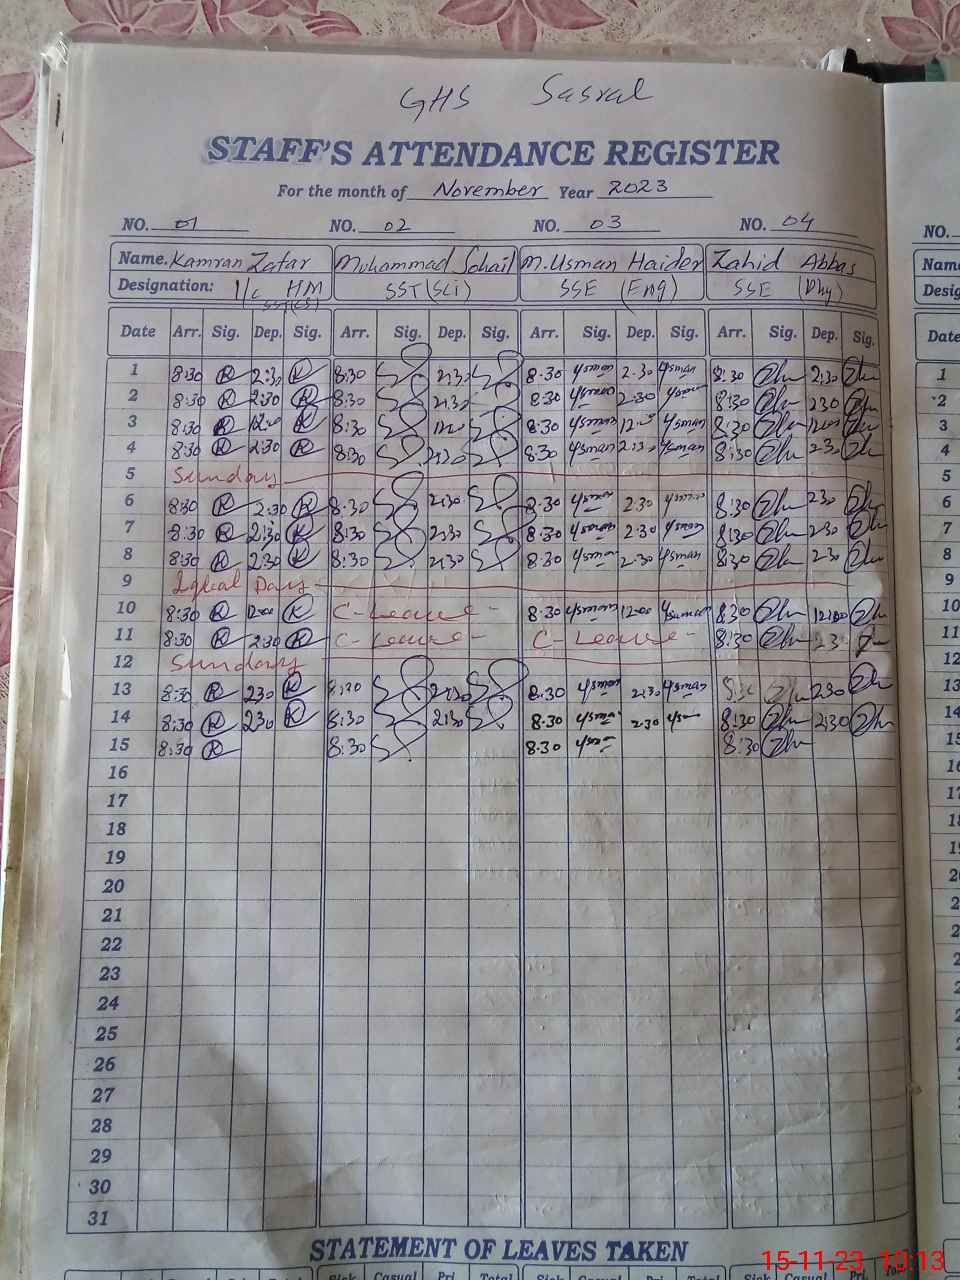 GHS Sasral
STAFF'S ATTENDANCE REGISTER
For the month of November Year 2023
NO. 01 NO. 02 NO. 03 NO. 04 NO.
Name. Kamran Zafar Muhammad Sohail M. Usman Haider Zahid Abbas Name
Designation: I/C HM SST(Sci) SSE (Eng) SSE (Phy) Desig
SST(CS)
Date Arr. Sig. Dep. Sig. Arr. Sig. Dep. Sig. Arr. Sig. Dep. Sig. Arr. Sig. Dep. Sig. Date
1 8:30 K 2:30 K 8:30 2:30 8:30 Usman 2:30 Usman 8:30 2:30 1
2 8:30 K 2:30 K 8:30 2:30 8:30 Usman 2:30 Usman 8:30 230 2
3 8:30 K 12:00 K 8:30 8:30 Usman Usman 8:30 3
4 8:30 K 2:30 K 8:30 2:30 8:30 Usman 2:30 Usman 8:30 2:30 4
5 Sunday 5
6 8:30 K 2:30 K 8:30 2:30 8:30 Usman 2:30 Usman 8:30 230 6
7 8:30 K 2:30 K 8:30 2:30 8:30 Usman 2:30 Usman 8:30 2:30 7
8 8:30 K 2:30 K 8:30 2:30 8:30 Usman 2:30 Usman 8:30 2:30 8
9 Iqbal Day 9
10 8:30 K 12:00 K C-Leave 8:30 Usman 12:00 Usman 8:30 12:00 10
11 8:30 K 2:30 K C-Leave - C-Leave - 8:30 23 11
12 Sunday 12
13 8:30 K 230 K 8:30 2:30 8:30 Usman 2:30 Usman 8:30 2:30 13
14 8:30 K 230 K 8:30 2:30 8:30 Usman 2:30 Usm 8:30 2:30 14
15 8:30 K 8:30 8:30 Usman 8:30 15
16 16
17 17
18 18
19 19
20 20
21 2
22 2
23 2
24 2
25 2
26 2
27 2
28 2
29
30
31
STATEMENT OF LEAVES TAKEN
Sick Casual Pri. Total Sick Casual Pri. Total Sick Casual Pri. Total
15-11-23 10:13